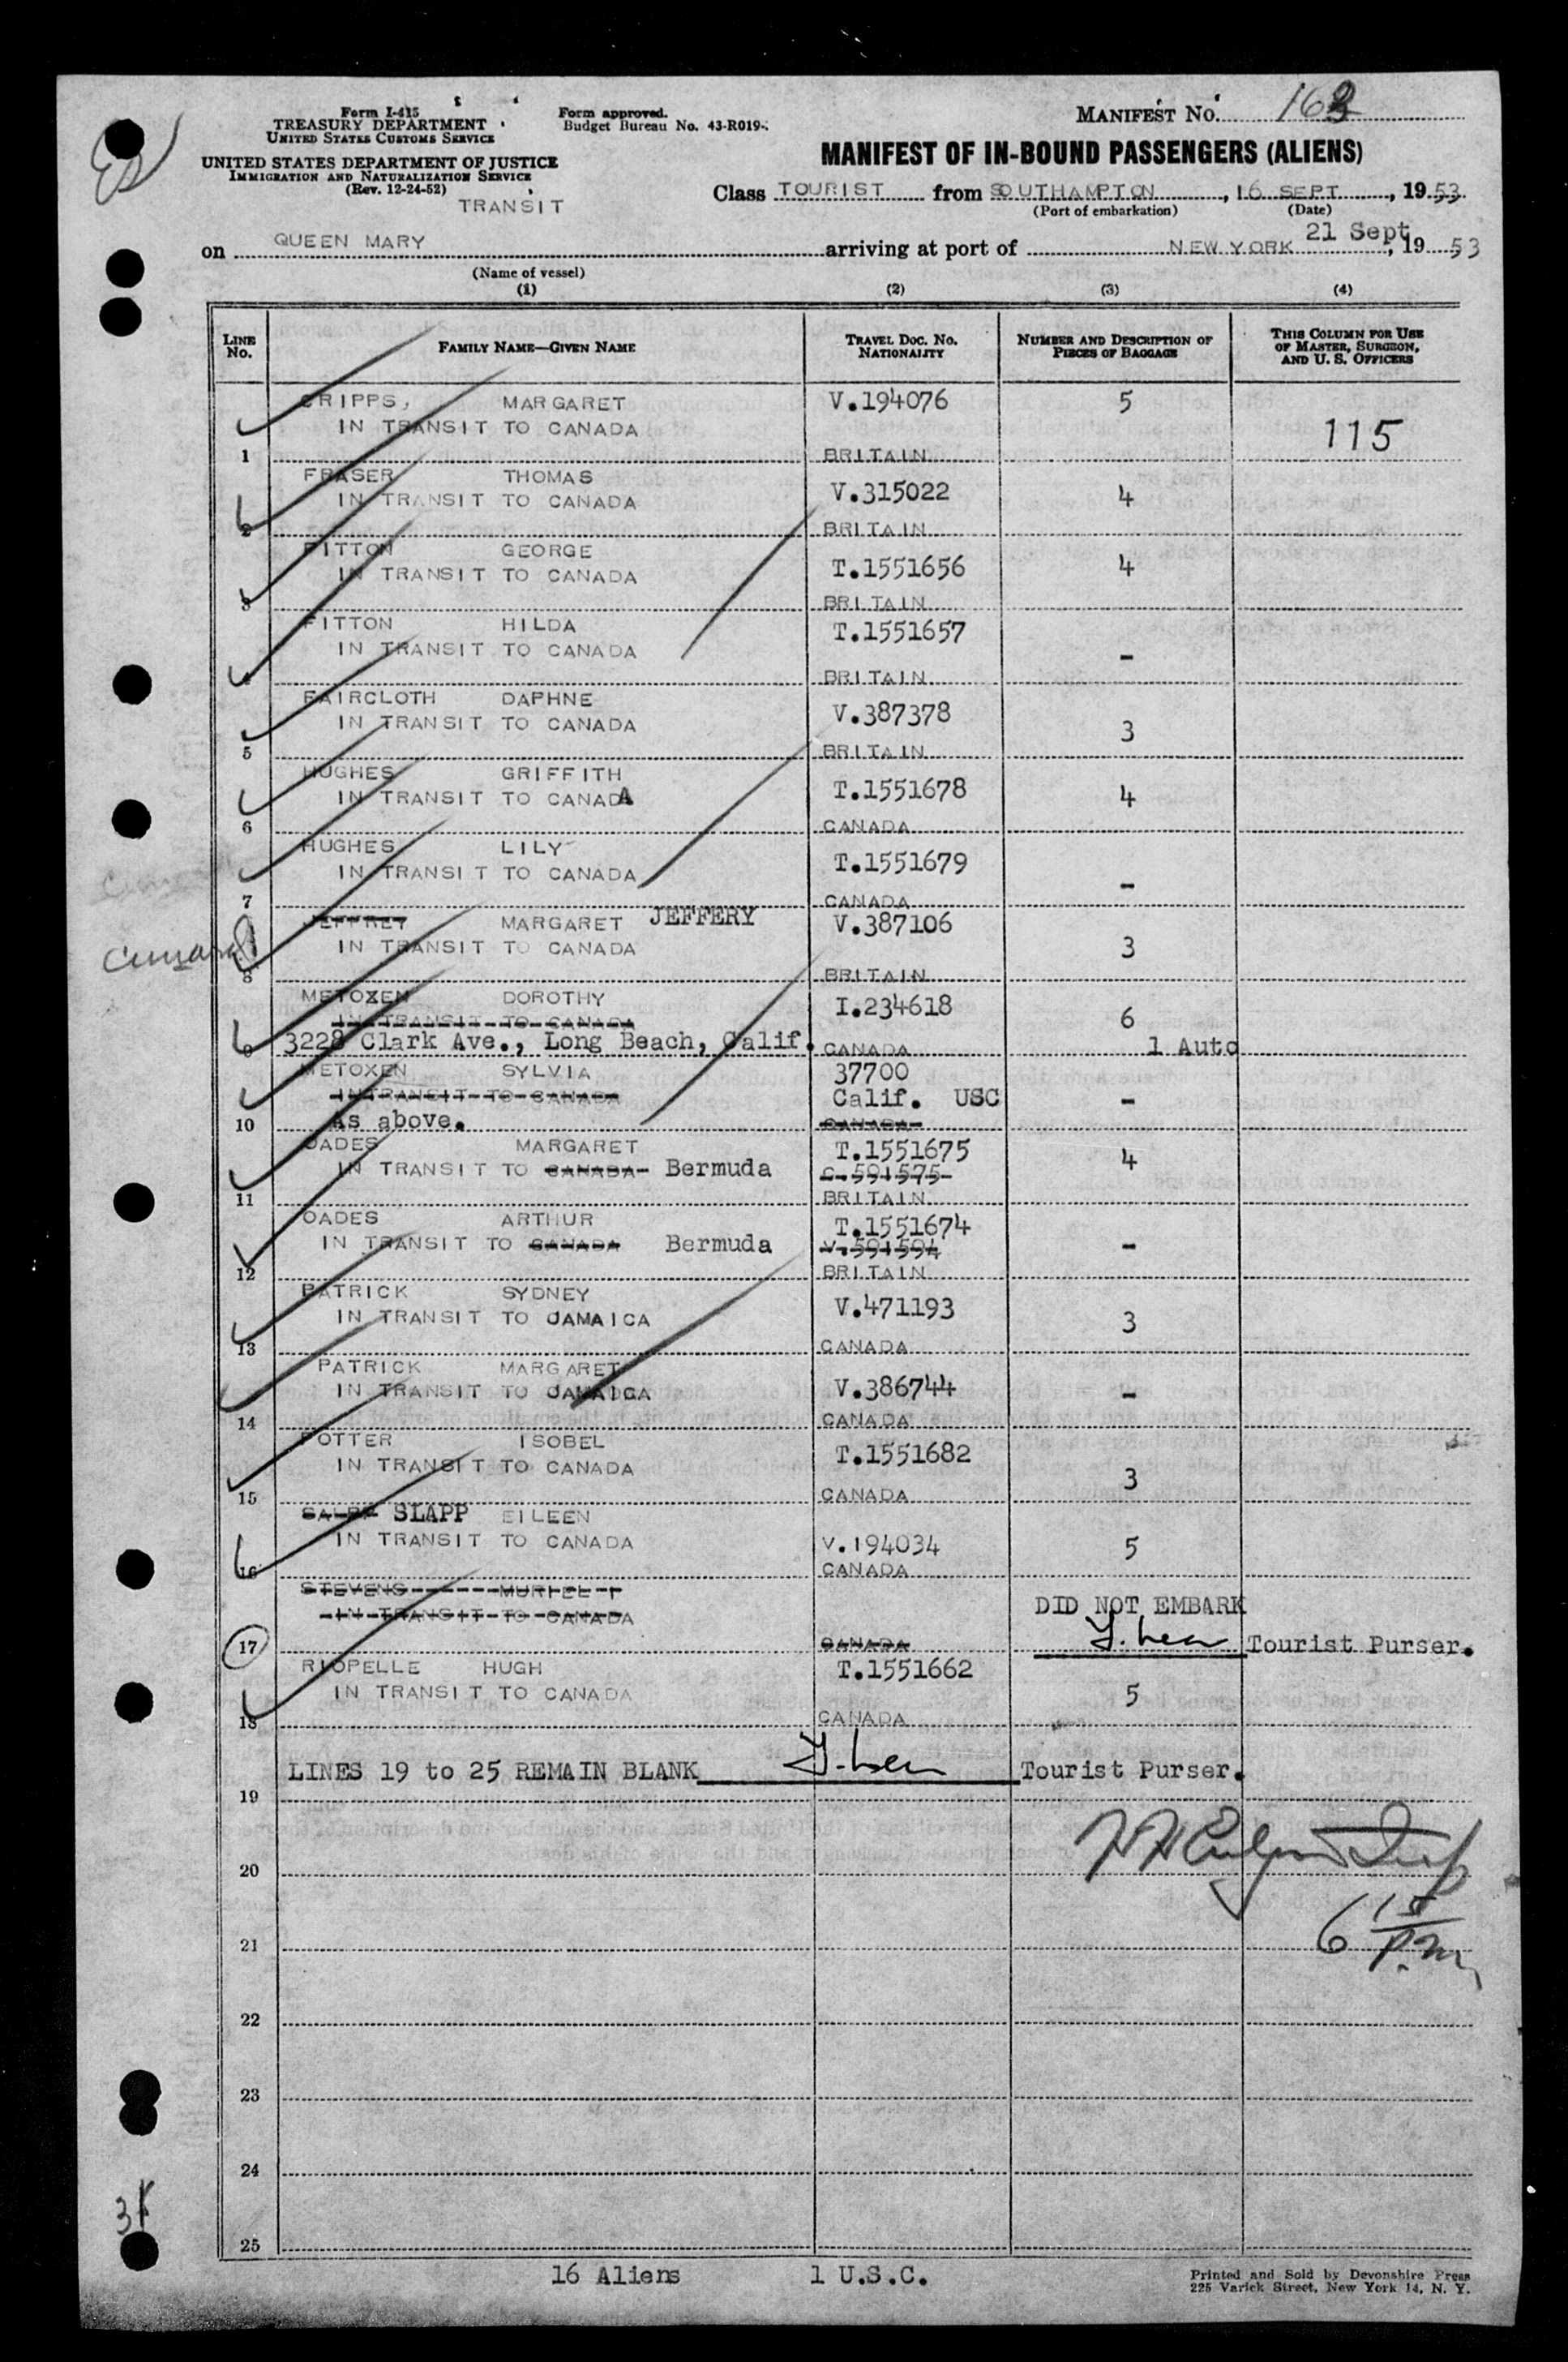 Form I-415
TREASURY DEPARTMENT
UNITED STATES CUSTOMS SERVICE
UNITED STATES DEPARTMENT OF JUSTICE
IMMIGRATION AND NATURALIZATION SERVICE
(Rev. 12-24-52)
TRANSIT
Form approved.
Budget Bureau No. 43-R019-.
MANIFEST No. 163
MANIFEST OF IN-BOUND PASSENGERS (ALIENS)
Class TOURIST from SOUTHAMPTON, 16 SEPT, 1953
(Port of embarkation) (Date)
on QUEEN MARY arriving at port of NEW YORK 21 Sept, 1953
(Name of vessel)
(1) (2) (3) (4)
LINE No. FAMILY NAME—GIVEN NAME TRAVEL DOC. NO. NATIONALITY NUMBER AND DESCRIPTION OF PIECES OF BAGGAGE THIS COLUMN FOR USE OF MASTER, SURGEON, AND U. S. OFFICERS
CRIPPS, MARGARET V.194076 5
IN TRANSIT TO CANADA 115
1 BRITAIN
FRASER THOMAS
IN TRANSIT TO CANADA V.315022 4
2 BRITAIN
FITTON GEORGE
IN TRANSIT TO CANADA T.1551656 4
3 BRITAIN
FITTON HILDA T.1551657
IN TRANSIT TO CANADA -
4 BRITAIN
FAIRCLOTH DAPHNE V.387378
IN TRANSIT TO CANADA 3
5 BRITAIN
HUGHES GRIFFITH
IN TRANSIT TO CANADA T.1551678 4
6 CANADA
HUGHES LILY T.1551679
IN TRANSIT TO CANADA -
7 CANADA
JEFFREY MARGARET JEFFERY V.387106
Cunard IN TRANSIT TO CANADA 3
8 BRITAIN
METOXEN DOROTHY I.234618
IN TRANSIT TO CANADA 6
9 3228 Clark Ave., Long Beach, Calif. CANADA 1 Auto
METOXEN SYLVIA 37700
IN TRANSIT TO CANADA Calif. USC -
10 As above. CANADA
OADES MARGARET T.1551675
IN TRANSIT TO CANADA Bermuda C.591575 4
11 BRITAIN
OADES ARTHUR T.1551674
IN TRANSIT TO CANADA Bermuda V.591594 -
12 BRITAIN
PATRICK SYDNEY V.471193
IN TRANSIT TO JAMAICA 3
13 CANADA
PATRICK MARGARET
IN TRANSIT TO JAMAICA V.386744 -
14 CANADA
POTTER ISOBEL T.1551682
IN TRANSIT TO CANADA 3
15 CANADA
SALPP SLAPP EILEEN
IN TRANSIT TO CANADA V.194034 5
16 CANADA
STEVENS MURIEL I
IN TRANSIT TO CANADA DID NOT EMBARK
17 CANADA Tourist Purser.
RIOPELLE HUGH T.1551662
IN TRANSIT TO CANADA 5
18 CANADA
LINES 19 to 25 REMAIN BLANK Tourist Purser.
19
20
21
6 15 P.m.
22
23
24
25
16 Aliens 1 U.S.C.
Printed and Sold by Devonshire Press
225 Varick Street, New York 14, N. Y.